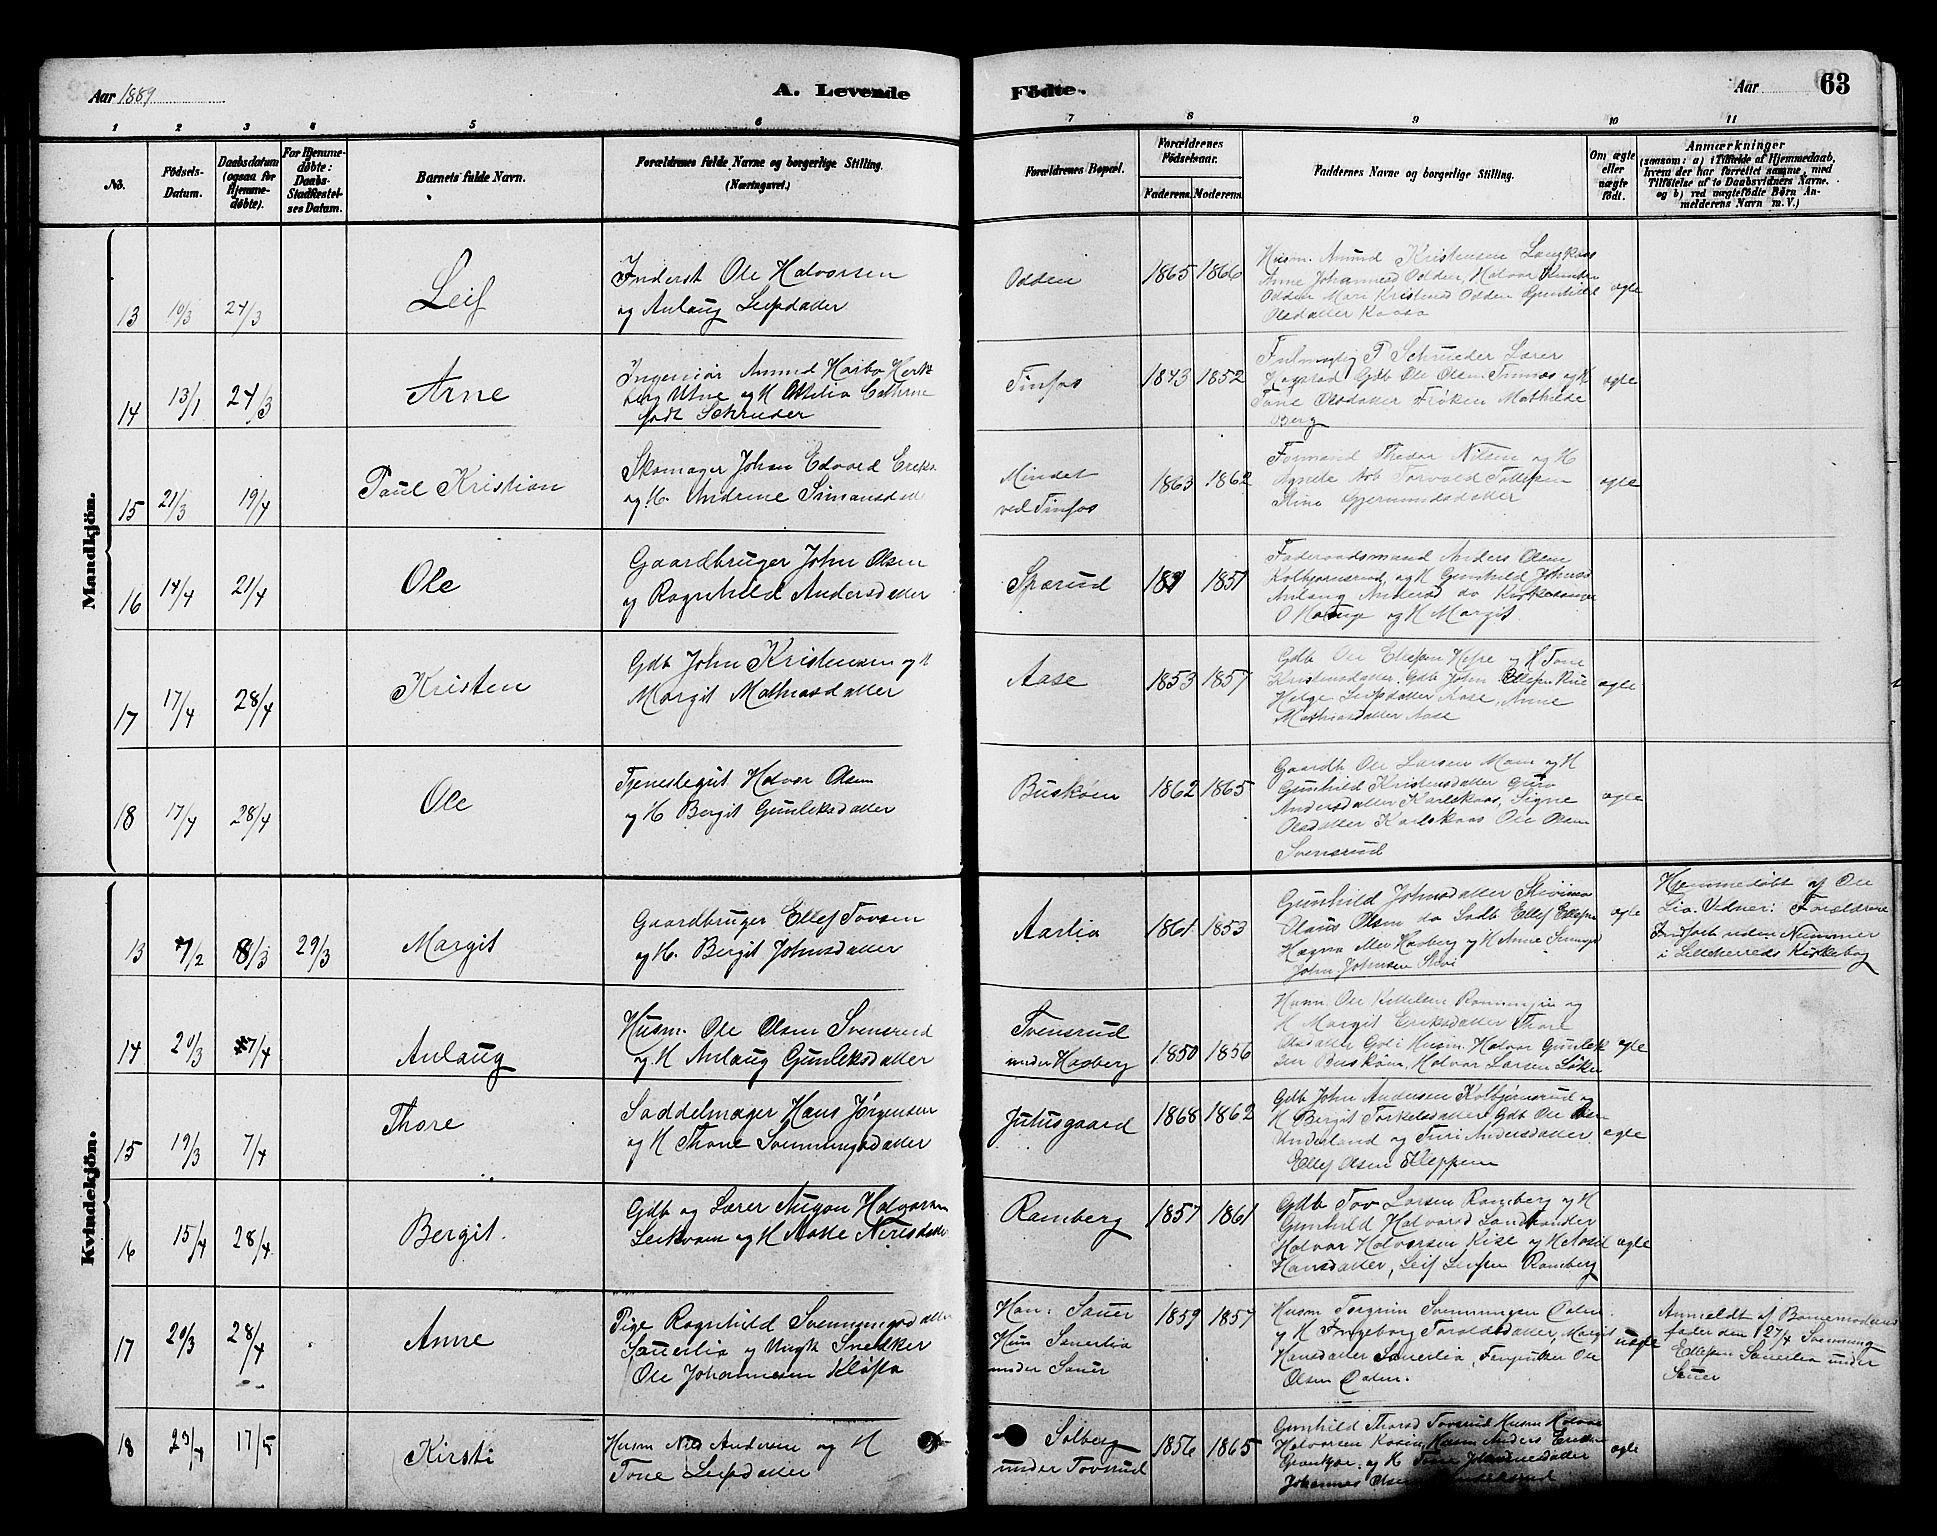 Aar 1889
A. Levende
Födte.
Aar
63
1 2 3 4 5 6 7 8 9 10 11
No.
Födsels-
Datum.
Daabsdatum
(ogsaa for
Hjemme-
döbte).
For Hjemme-
döbte:
Daabs-
Stadfæstel-
ses Datum.
Barnets fulde Navn.
Forældrenes fulde Navne og borgerlige Stilling.
(Næringsvei.)
Forældrenes Bopæl.
Forældrenes
Födselsaar.
Faderens. Moderens.
Faddernes Navne og borgerlige Stilling.
Om ægte
eller
uægte
født.
Anmærkninger
(saasom: a) i Tilfælde af Hjemmedaab,
hvem der har forrettet samme, med
Tilföielse af to Daabsvidners Navne.
og b) ved uægtefödte Börn An-
melderens Navn m. V.)
Mandkjön.
13 10/3 24/3 Leif
Inderst Ole Halvorsen
og Anlaug Leifsdatter
Odden 1865 1866
Husm. Amund Kristensen Langkaas
Anne Johannesd Odden, Halvor
Odden Mari Kristensd Odden Gunhild
Olsdatter Kaasa
ægte
14 13/1 24/3 Arne
Ingeniør Amund Harbo
Utne og H Ottilia Cathrine
født Schrøder
Tinfos 1843 1852
Fulmægtig P Schrøder Lærer
Hogstad Gdb Ole Olsen Tinnes og H
Tone Olsdatter Frøken Mathilde
Berg
ægte
15 21/3 19/4 Paul Kristian
Skomager Johan Edvard
og H. Andrine Simonsdatter
Mindet
ved Tinfos
1863 1862
Formand Thedor Nilsen og H
Agnete Arb Torvald Tollefsen
Stine Gjermundsdatter
ægte
16 14/4 21/4 Ole
Gaardbruger John Olsen
og Ragnhild Andersdatter
Sparud 1851
Føderaadsmand Anders Olsen
Kolbjørnsrud og H Gunhild Johnsd
Anlaug Andersd do Kirkesanger
O Hauge og H Margit
17 17/4 28/4 Kristen
Gdb John Kristensen og H
Margit Mathiasdatter
Aase 1853 1857
Gdb Ole Ellefsen Hefre og H Tone
Kristensdatter. Gdb John Ellefsen Rue
Helge Leifsdatter Aase, Anne
Mathiasdatter Aase
ægte
18 17/4 28/4 Ole
Tjenestegut Halvor Olsen
og H Bergit Gunleksdatter
Buskøen 1862 1865
Gaardb Ole Larsen Moen og H
Gunhild Kristensdatter Guro
Andersdatter Karlskaas, Signe
Olsdatter Karlskaas Ole Olsen
Svensrud
ægte
Kvindekjön.
13 7/2 8/3 29/3 Margit
Gaardbruger Ellef Tovsen
og H. Bergit Johnsdatter
Aarlia 1861 1853
Gunhild Johnsdatter
Olaus Olsen do Ellef Ellefsen
Haavberg og H Anne
John Johnsen
ægte
Hjemmedøbt af Ole
Lia. Vidner: Forældrene
Indført uden Nummer
i Lilleherreds Kirkebog
14 20/3 7/4 Anlaug
Husm. Ole Olsen Svensrud
og H Anlaug Gunleksdatter
Svensrud
under Haaberg
1850 1856
Husm. Ole Kittelsen Rønningen og
H Margit Eriksdatter Thore
Olsdatter Husm. Halvor Gunlek
sen Buskøen, Halvor Larsen
ægte
15 19/3 7/4 Thore
Saddelmager Hans Jørgensen
og H Thone Svenningsdatter
Julusgaard 1868 1862
Gdb John Andersen Kolbjørnsrud og
H Bergit Torkelsdatter Gdb Ole
Underland og Turi Andersdatter
Ellef Olsen Kleppen
ægte
16 15/4 28/4 Bergit.
Gdb og Lærer Augon Halvorsen
Leikvam og H Aaste Nirisdatter
Ramberg 1857 1861
Gdb Tov Larsen Ramberg og H
Gunhild Halvorsd
Halvor Halvorsen Kise og H
Hansdatter, Leif Leifsen Ramberg
ægte
17 20/3 28/4 Anne
Pige Ragnhild Svenningsdatter
Sauerlia og Ungk Snekker
Ole Johannesen Kløfta
Han: Sauer
Hun Sauerlia
under Sauer
1859 1857
Husm Torgrim Svenningsen Dalen
og H Ingeborg Toroldsdatter, Margit
Hansdatter Sauerlia, Ole
Olsen Dalen.
uægte
Anmeldt af Barnemoderens
fader den 27/4 Svenning
Ellefsen Sauerlia under
Sauer
18 23/4 17/5 Kirsti
Husm Nils Andersen og H
Tone Leifsdatter
Solberg
under Tovsrud
1856 1865
Gunhild Thorsd Tovsrud Husm Halvor
Halvorsen Husm Anders
og H Tone Johannesdatter
Johannes Olsen
ægte